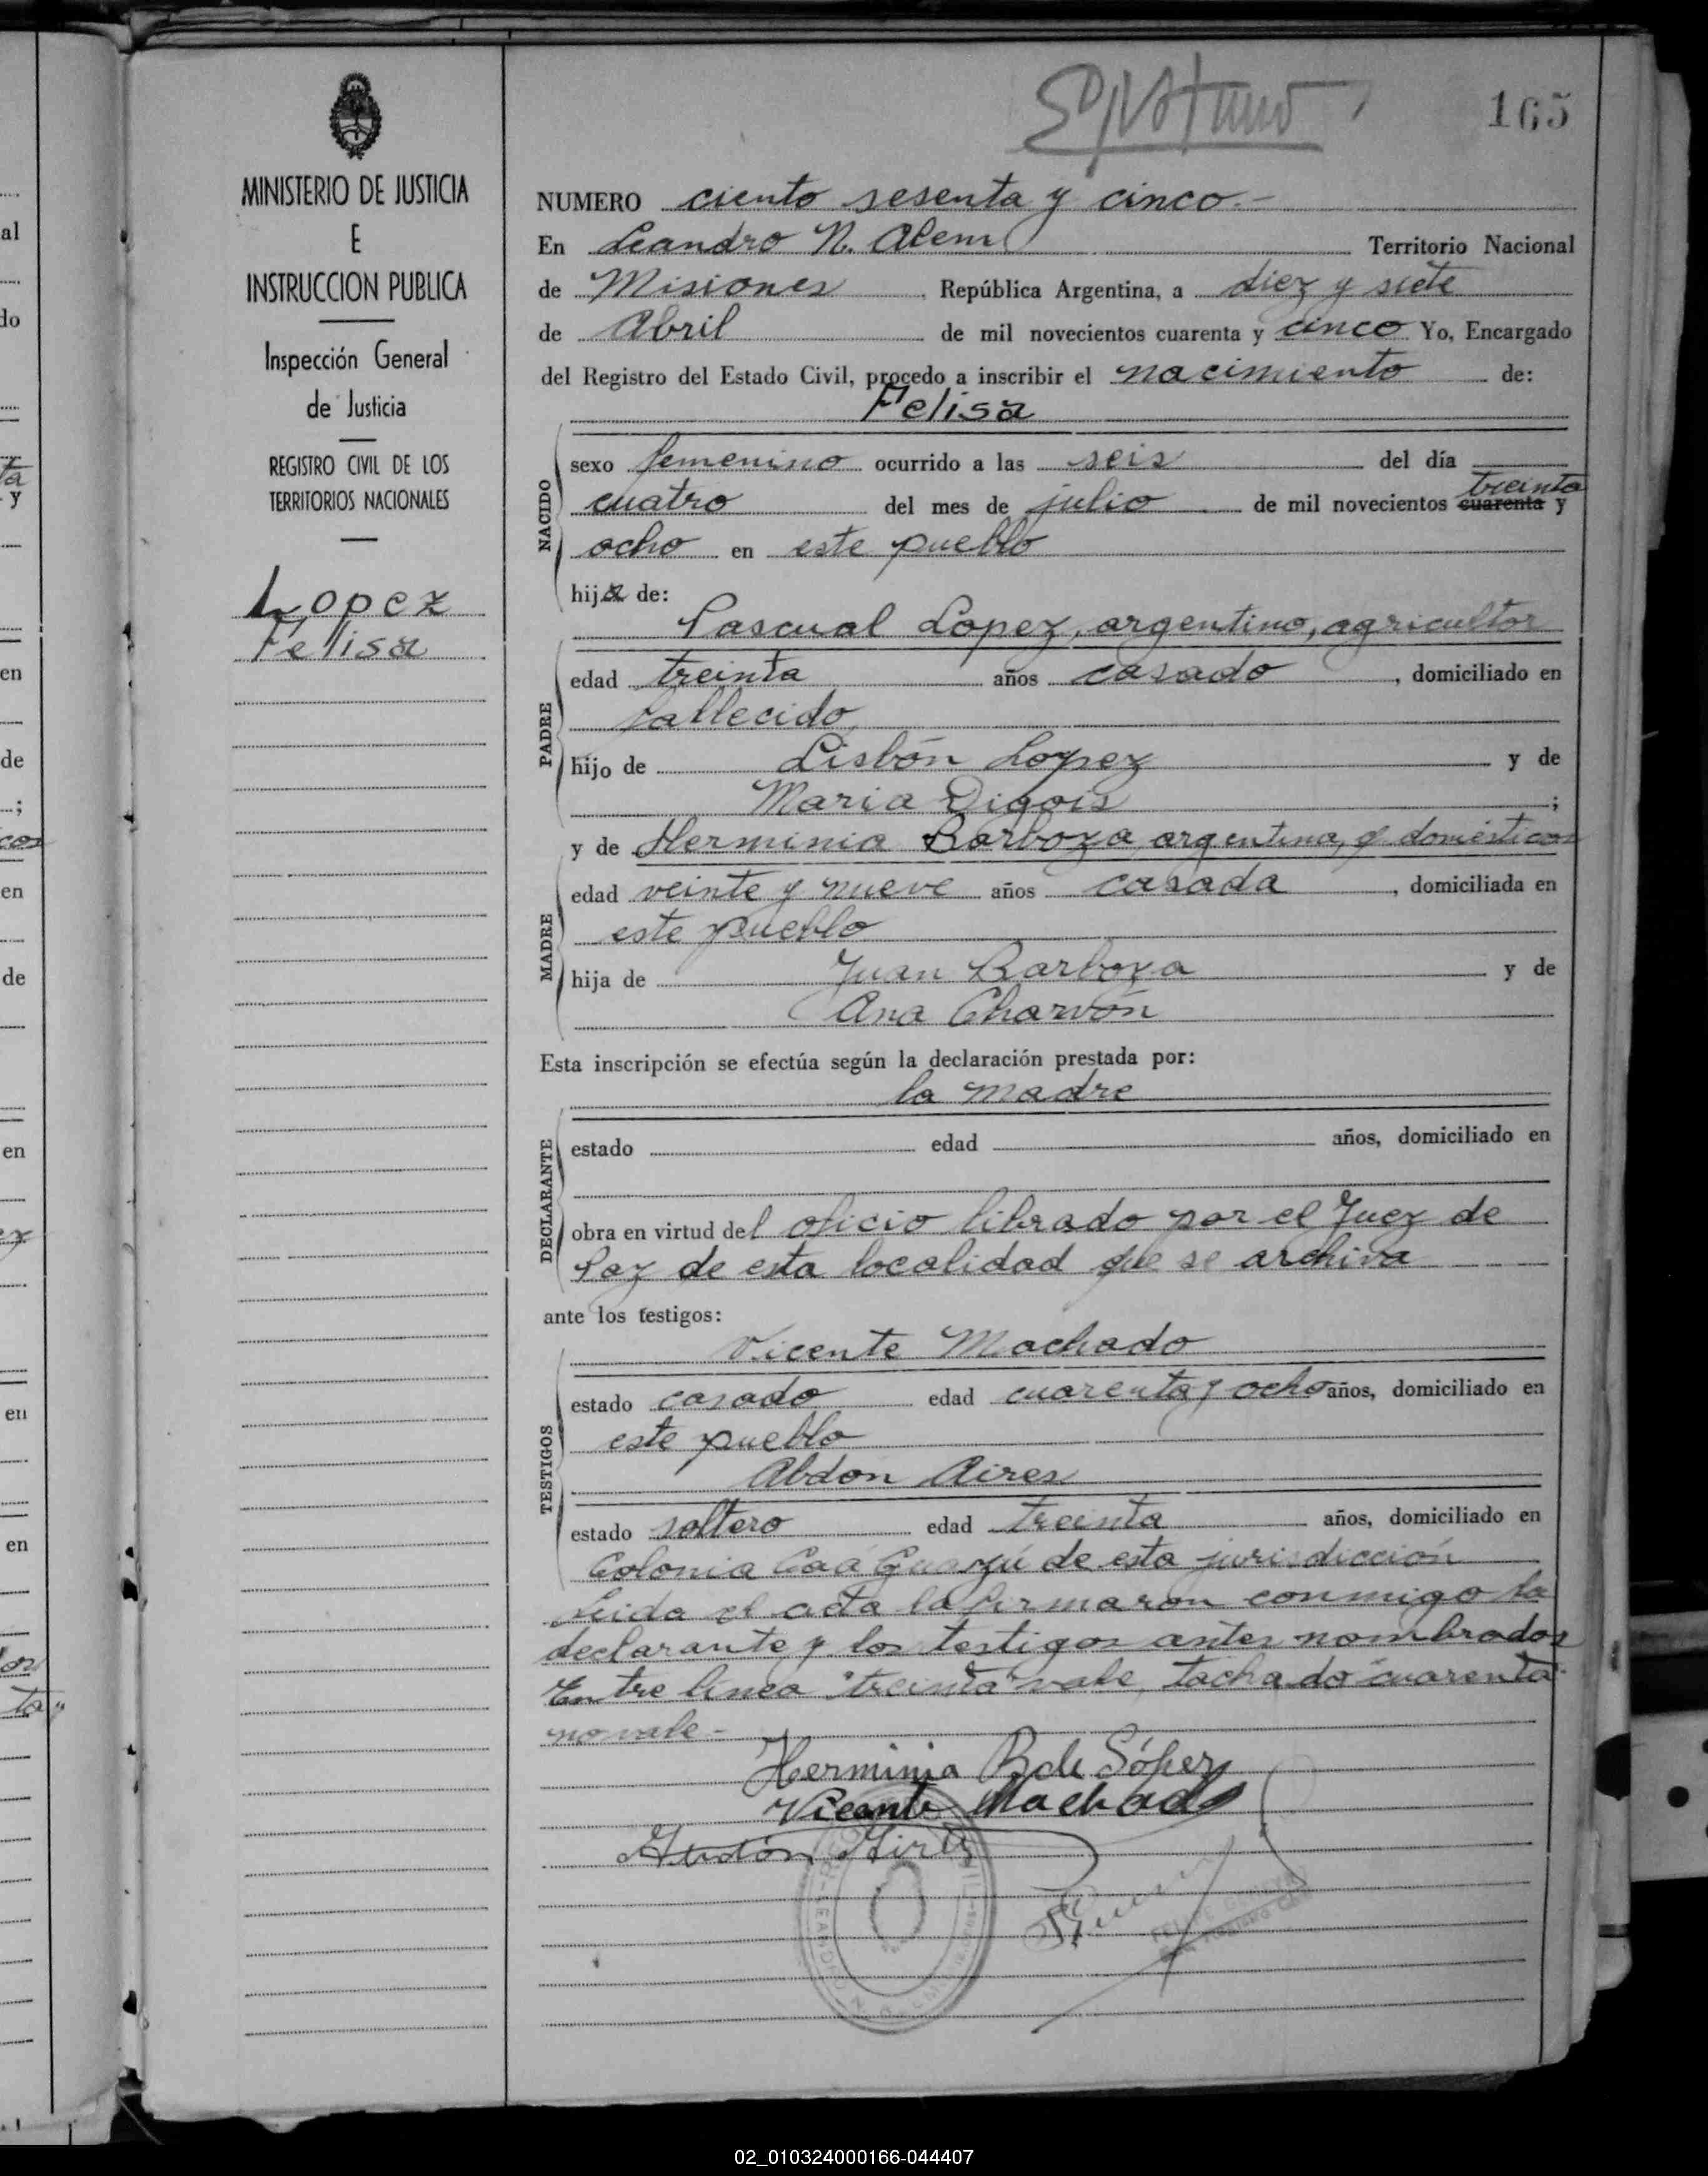 165
MINISTERIO DE JUSTICIA
E
INSTRUCCION PUBLICA
Inspección General
de Justicia
REGISTRO CIVIL DE LOS
TERRITORIOS NACIONALES
Lopez
Felisa
NUMERO ciento sesenta y cinco.-
En Leandro N. Alem Territorio Nacional
de Misiones, República Argentina, a diez y siete
de Abril de mil novecientos cuarenta y cinco Yo, Encargado
del Registro del Estado Civil, procedo a inscribir el nacimiento de:
Felisa
NACIDO
sexo femenino ocurrido a las seis del día
treinta
cuatro del mes de julio de mil novecientos cuarenta y
ocho en este pueblo
hija de:
PADRE
Pascual Lopez, argentino, agricultor
edad treinta años casado, domiciliado en
fallecido
hijo de Lisbón Lopez y de
Maria Digois;
MADRE
y de Herminia Barboza, argentina, q. domésticos
edad veinte y nueve años casada, domiciliada en
este pueblo
hija de Juan Barboza y de
Ana Charvón
Esta inscripción se efectúa según la declaración prestada por:
la madre
DECLARANTE
estado edad años, domiciliado en
obra en virtud del oficio librado por el Juez de
Paz de esta localidad que se archiva
ante los testigos:
TESTIGOS
Vicente Machado
estado casado edad cuarenta y ocho años, domiciliado en
este pueblo
Abdon Aires
estado soltero edad treinta años, domiciliado en
Colonia Caá Guazú de esta jurisdicción
Leida el acta la firmaron conmigo la
declarante y los testigos antes nombrados
Entre linea "treinta" vale, tachado "cuarenta"
no vale-
Herminia B de López
Vicente Machado
02_010324000166-044407